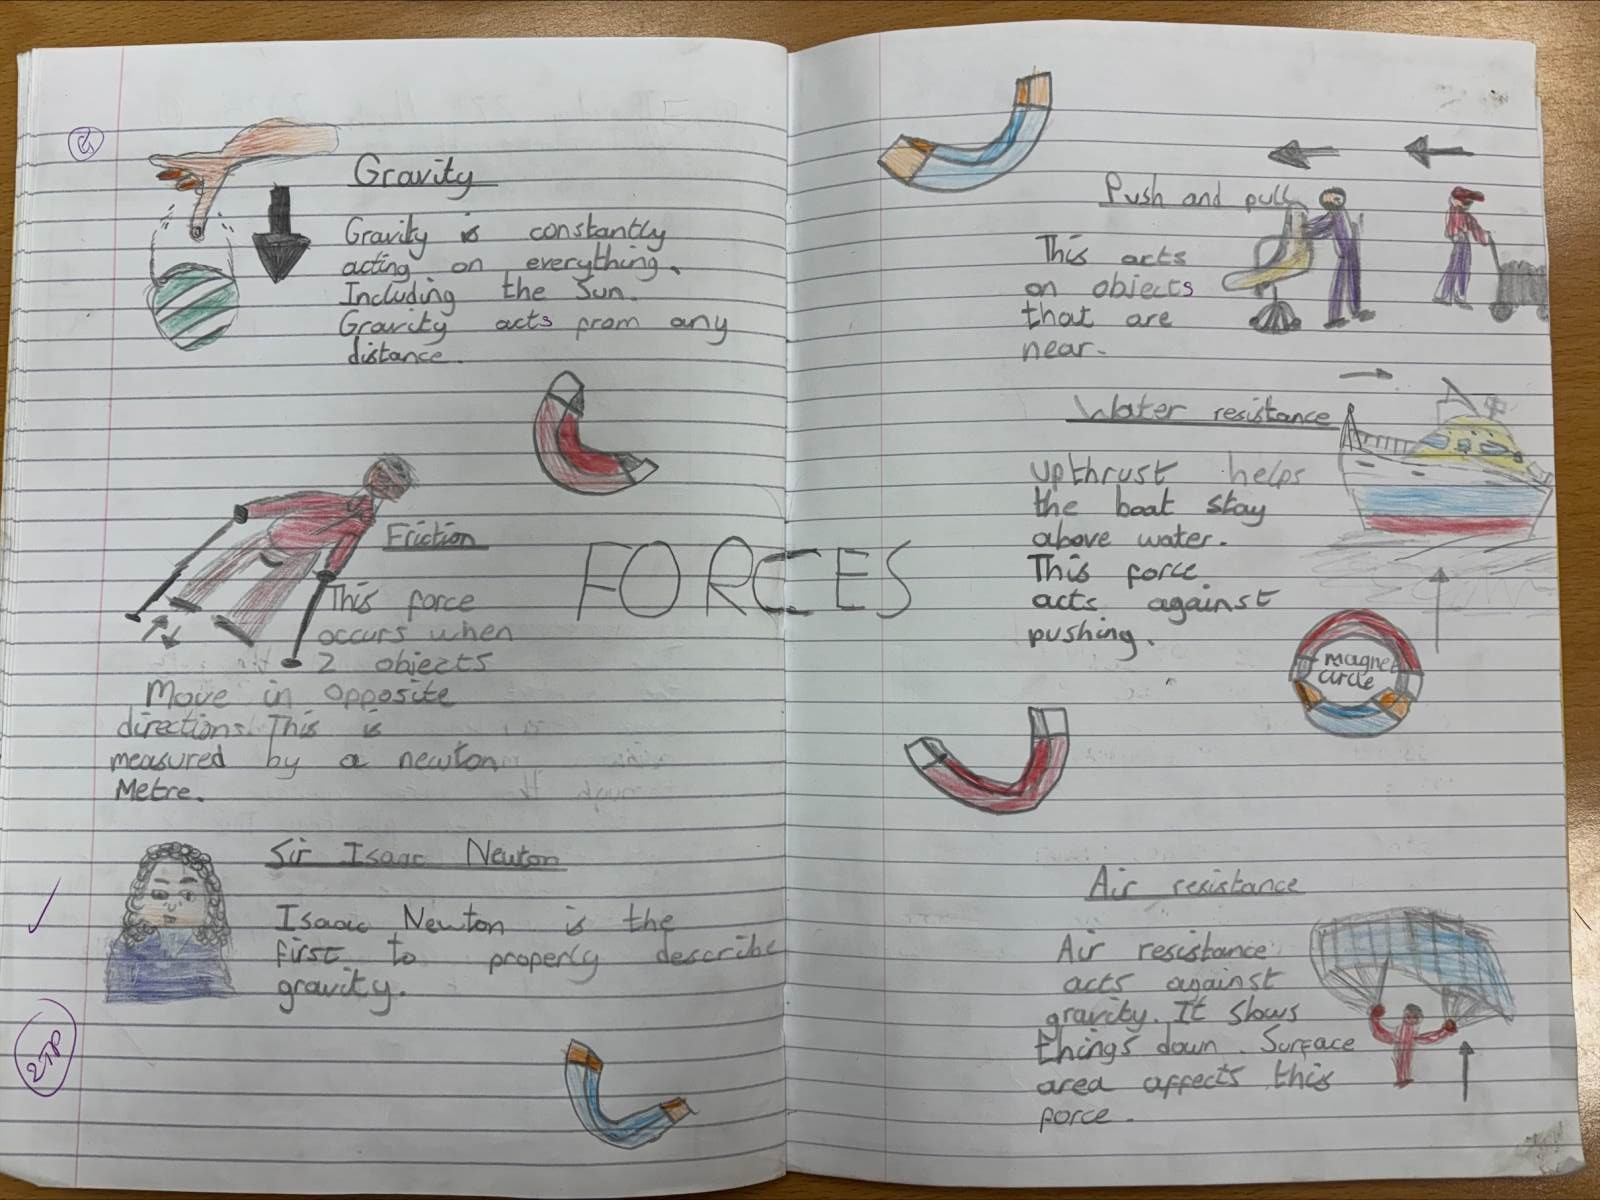 Gravity
Gravity is constantly
acting on everything.
Including the Sun.
Gravity acts from any
distance.
Friction
This force
occurs when
2 objects
Move in opposite
directions. This is
measured by a newton
Metre.
Sir Isaac Newton
Isaac Newton is the
first to properly describe
gravity.
2TP
FORCES
Push and pull
This acts
on objects
that are
near.
Water resistance
Upthrust helps
the boat stay
above water.
This force
acts against
pushing.
magnet
circle
Air resistance
Air resistance
acts against
gravity. It slows
things down. Surface
area affects this
force.